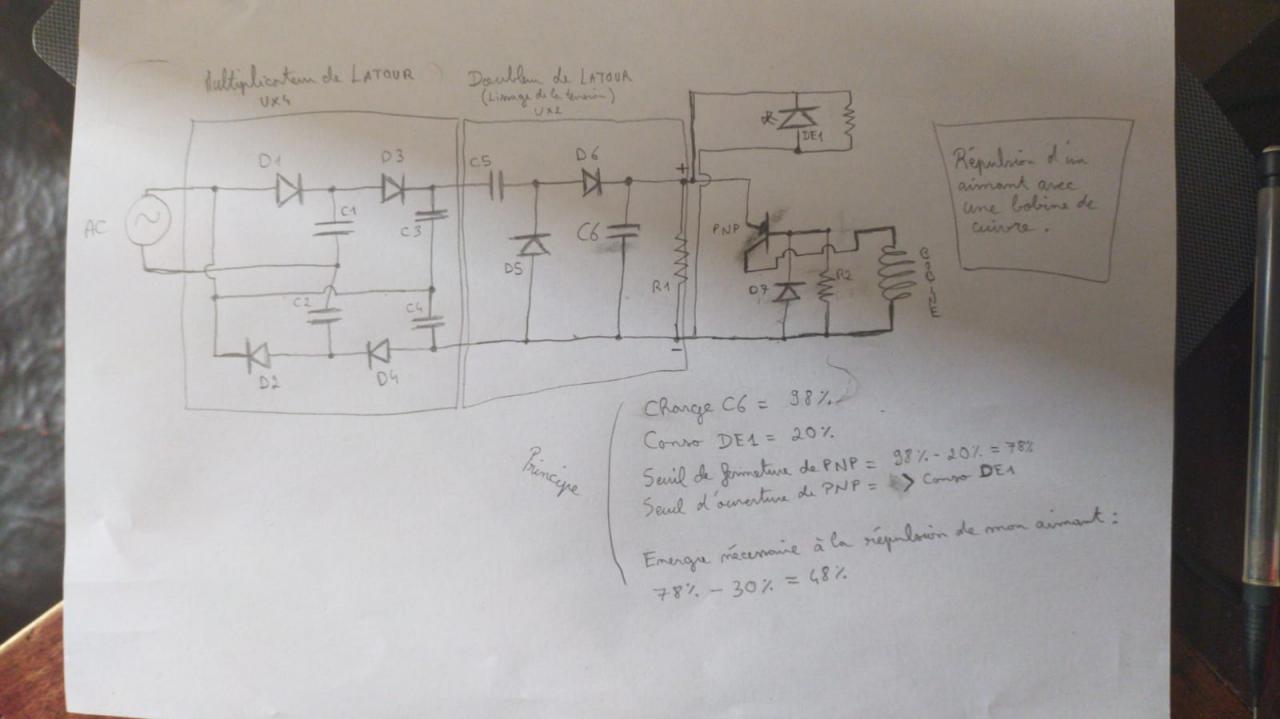 Multiplicateur de LATOUR
UX4
Doubleur de LATOUR
(Lissage de la tension)
UX2
DE1
D1
D3
C5
D6
+
AC
C1
C3
C6
D5
PNP
R1
D7
R2
BOBINE
C2
C4
D2
D4
-
Répulsion d'un
aimant avec
une bobine de
cuivre.
Principe
Charge C6 = 98%
Conso DE1 = 20%
Seuil de fermeture de PNP = 98% - 20% = 78%
Seuil d'ouverture de PNP = > Conso DE1
Energie nécessaire à la répulsion de mon aimant :
78% - 30% = 48%